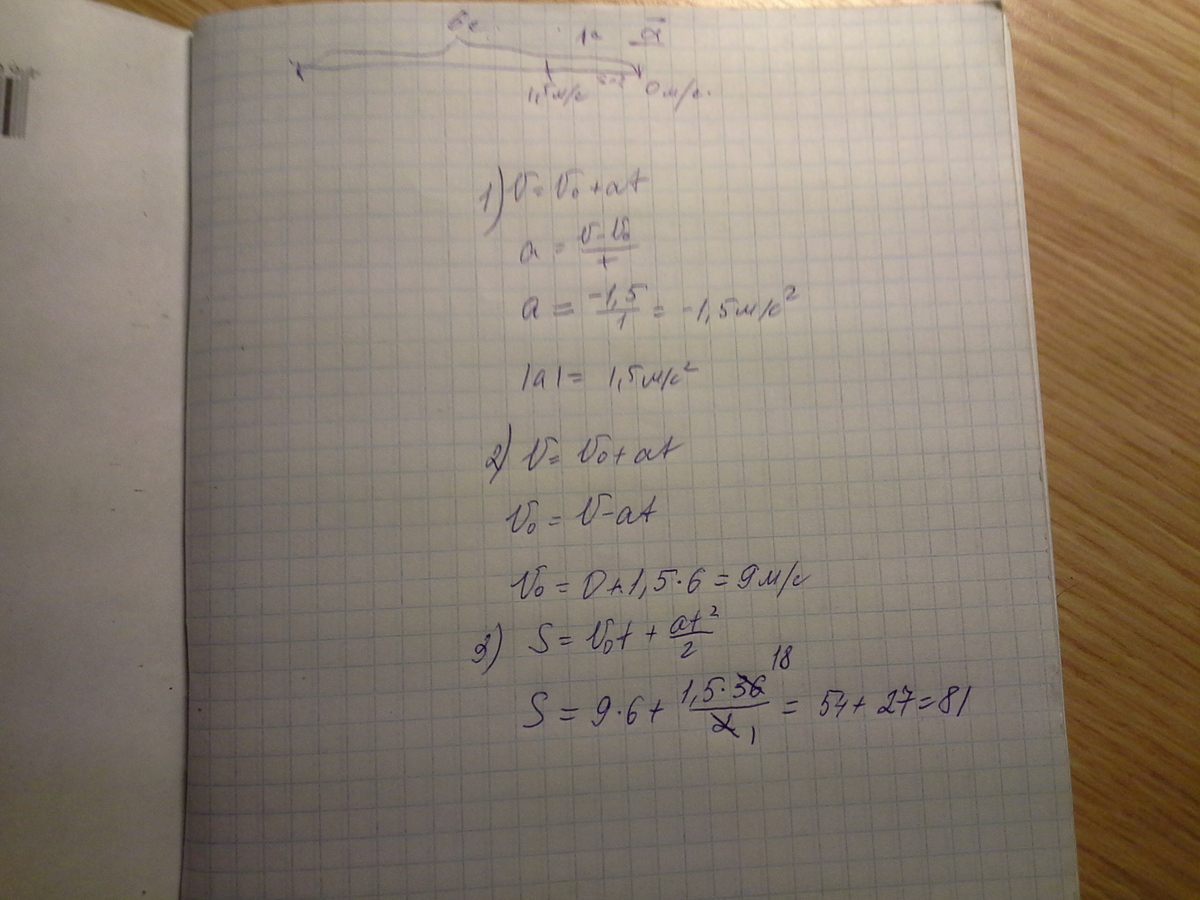 6с 1с a⃗
1,5м/с 0м/с.
1) V = V₀ + at
a = (V-V₀)/t
a = -1,5/1 = -1,5м/с²
|a| = 1,5м/с²
2) V = V₀ + at
V₀ = V-at
V₀ = 0+1,5·6 = 9м/с
3) S = V₀t + at²/2
S = 9·6 + 1,5·36/2 18 1 = 54 + 27 = 81